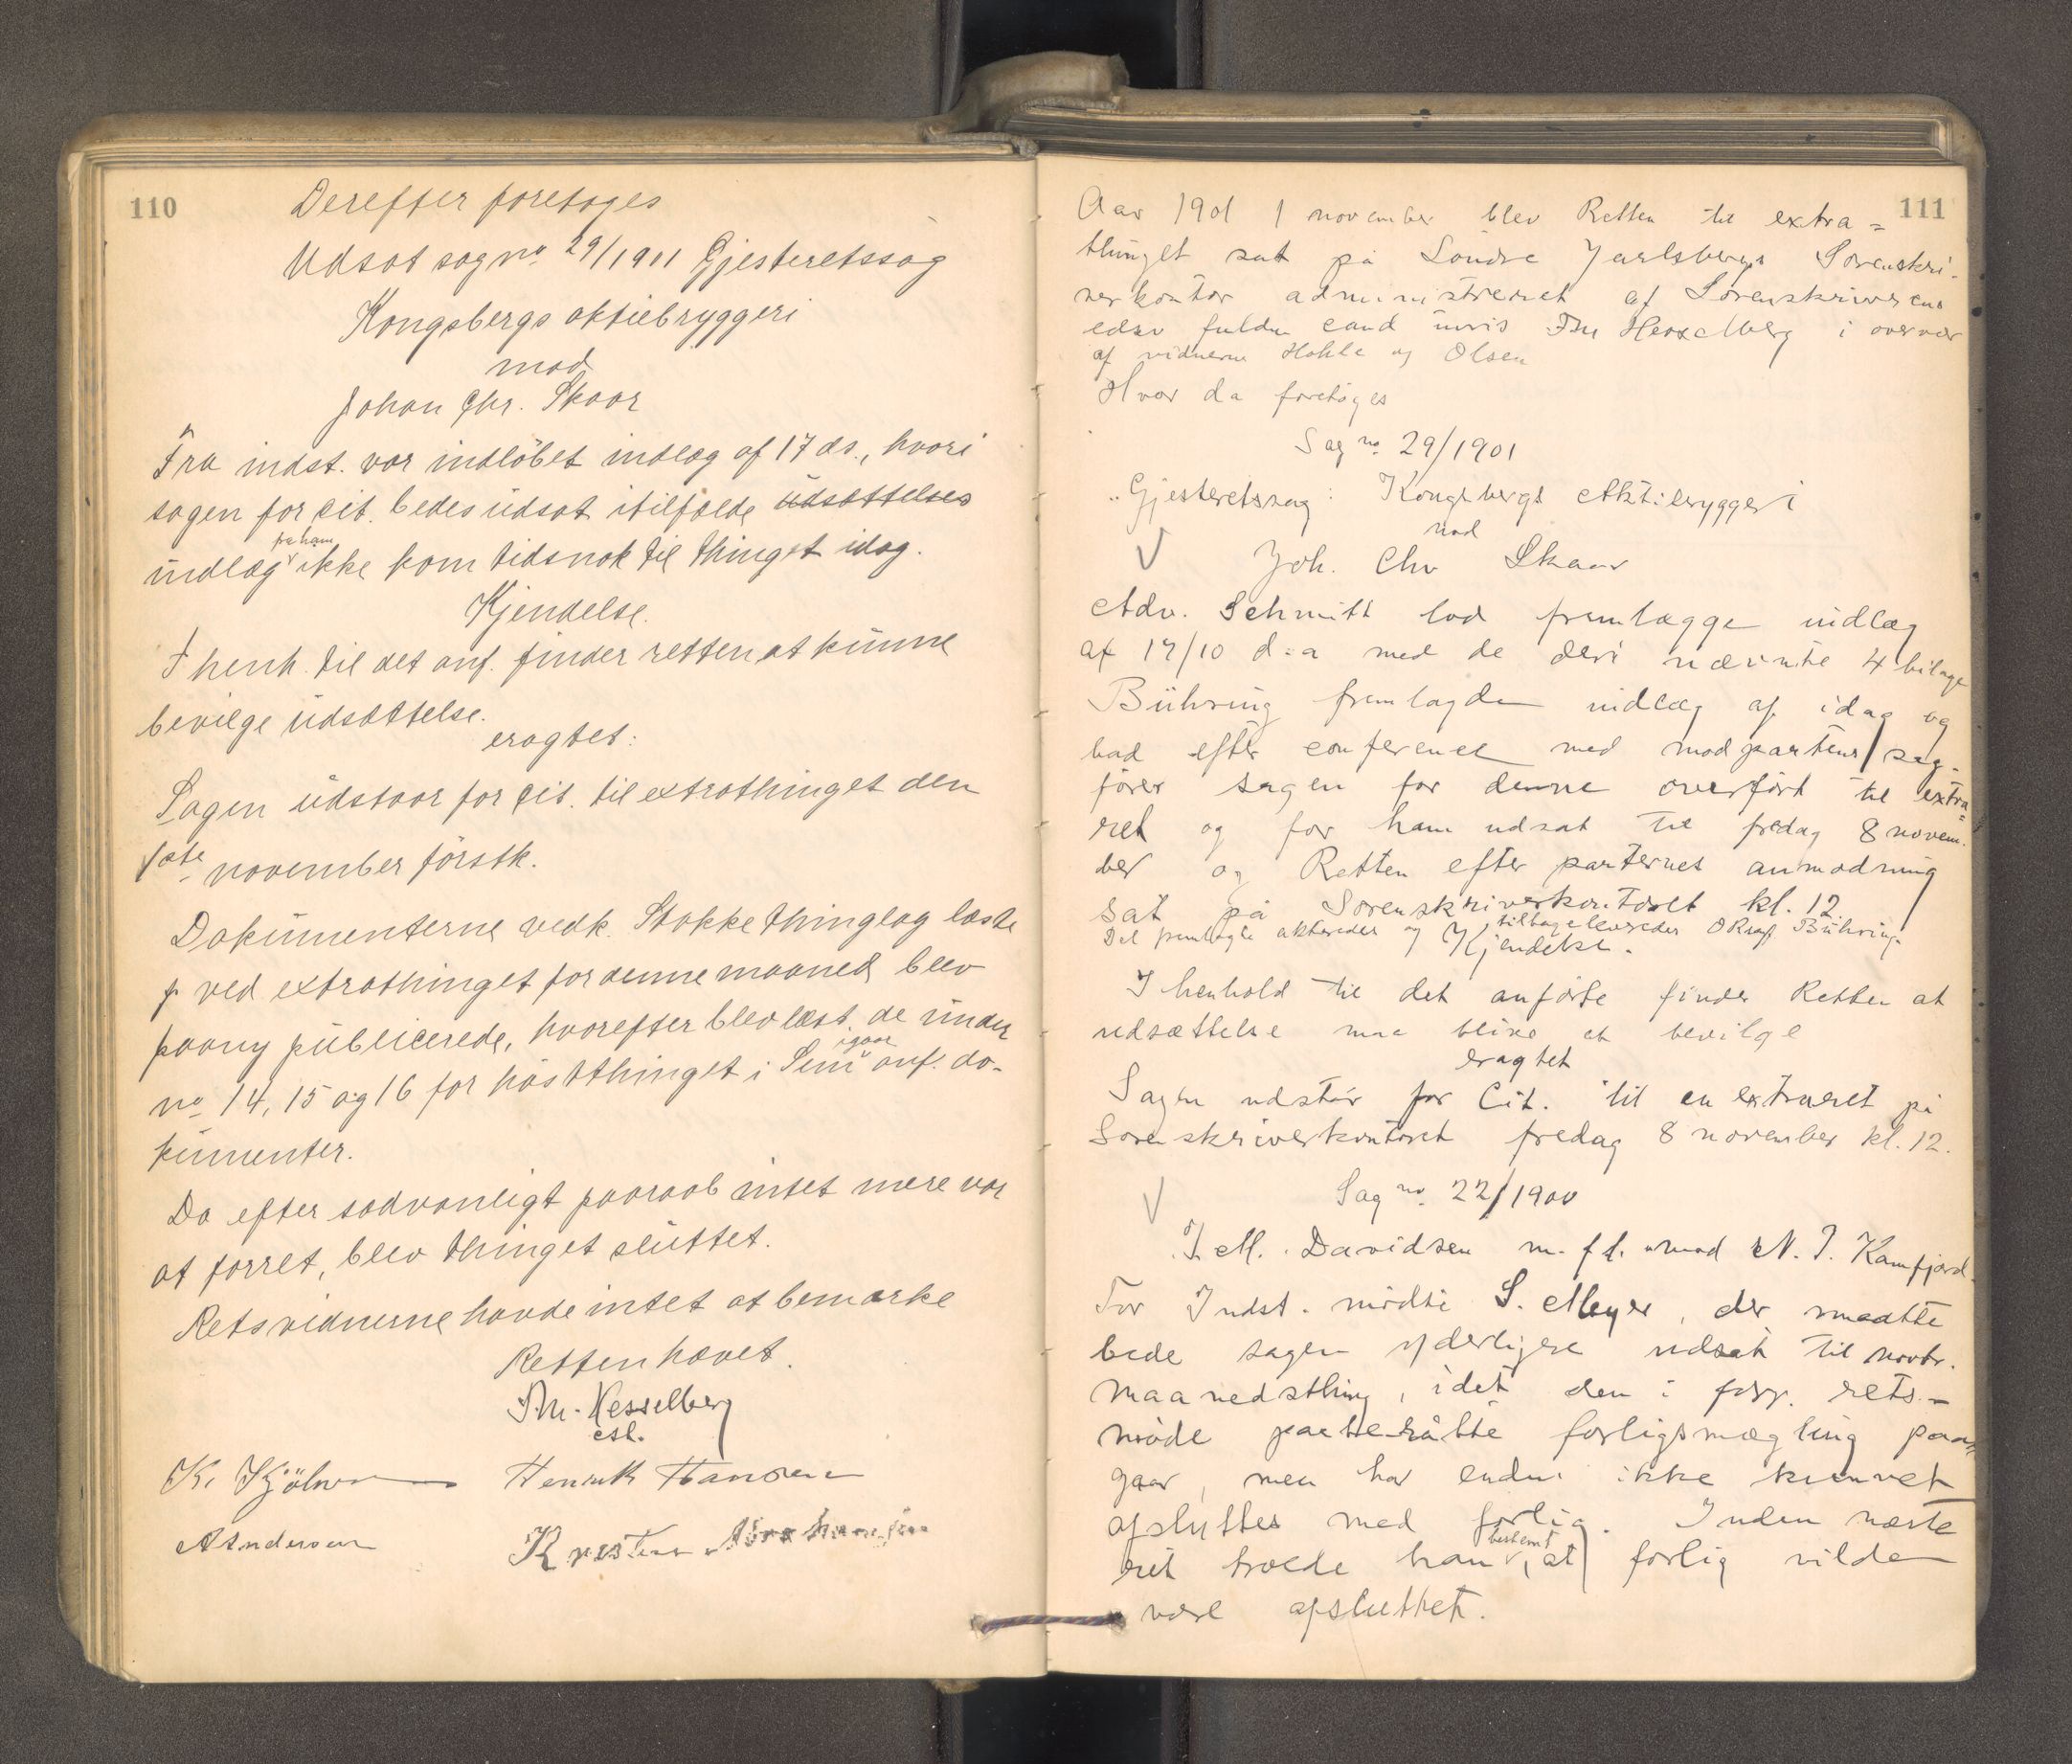 110
Derefter foretoges
Udsat sag no 29/1911 Gjesteretssag
Kongsbergs aktiebryggeri
mod
Johan Chr. Skaar
Fra indst. var indlöbet indlæg af 17 ds., hvori
sagen for cit. bedes udsat itilfælde udsættelses
fra ham
indlæg ikke kom tidsnok til thinget idag.
Kjendelse.
I henh. til det anf. finder retten at kunne
bevilge udsættelse.
eragtet:
Sagen udstaar for cit. til extrathinget den
1ste november förstk.
Dokumenterne vedk. Stokke thinglag læste
ved extrathinget for denne maaned blev
paany publicerede, hvorefter blev læst de under
igaar
no 14, 15 og 16 for høstthinget i Sem anf. do-
kumenter.
Da efter sædvanligt paaraab intet mere var
at forret, blev thinget sluttet.
Retsvidnerne havde intet at bemærke
Retten hævet.
Th. Hesselberg
cst.
K. Kjölner Henrik Hansen
A Andersen Kristian Abrahamsen
111
Aar 1901 1 november blev Retten til extra=
thinget sat på Söndre Jarlsbergs Sorenskri-
verkontor administreret af Sorenskriverens
edsv fuldm cand juris Th Hesselberg i overvær
af vidnerne Hohle og Olsen
Hvor da foretoges
Sag no 29/1901
Gjesteretssag: Kongsbergs Aktiebryggeri
mod
Joh. Chr Skaar
Adv. Schmitt lod fremlægge indlæg
af 17/10 d.a med de deri nævnte 4 bilage
Bühring fremlagde indlæg af idag og
bad efter conference med modpartens sag-
förer sagen for denne overfört til extra=
ret og for ham udsat til fredag 8 novem-
ber og Retten efter parternes anmodning
sat på Sorenskriverkontoret kl. 12
Det fremlagte akteredes og tilbageleveredes ORsagf Bühring.
Kjendelse.
I henhold til det anförte finder Retten at
udsættelse maa blive at bevilge
eragtet
Sagen udstår for Cit. til en extraret på
Sorenskriverkontoret fredag 8 november kl. 12.
Sag no. 22/1900
J. M. Davidsen m. fl. mod N. J. Kamfjord.
For Indst. mödte S. Meyer, der maatte
bede sagen yderligere udsat til novbr.
maanedsthing, idet den i forr. rets-
möde paaberåbte forligsmægling paa-
gaar, men har endnu ikke kunnet
afsluttes med forlig. Inden næste
bestemt
ret troede han, at forlig vilde
være afsluttet.